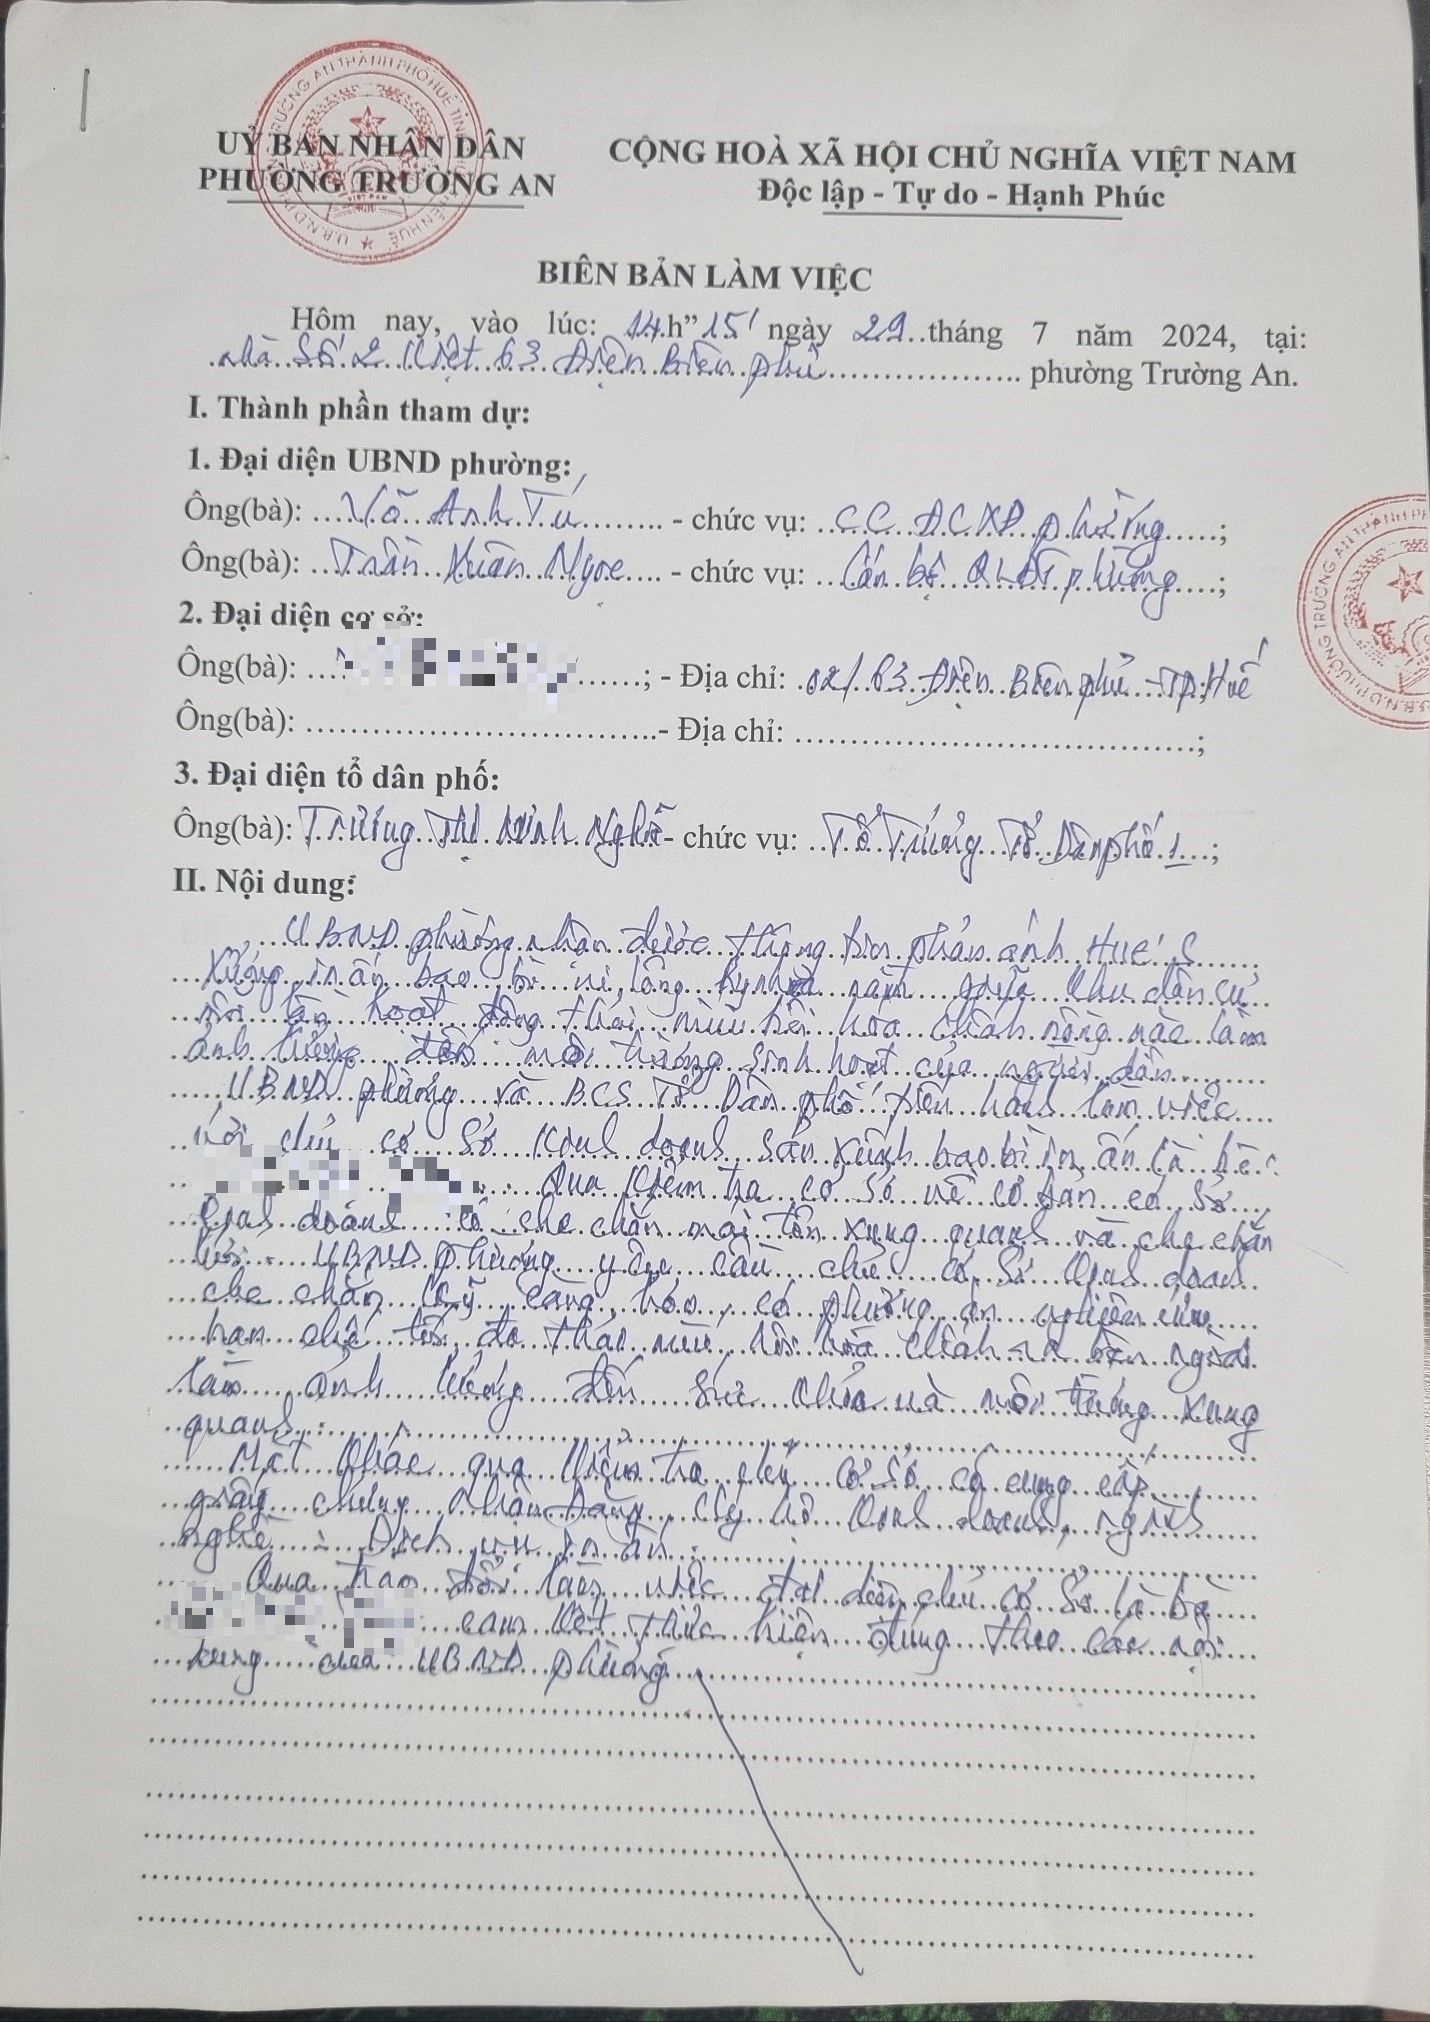 UỶ BAN NHÂN DÂN
PHƯỜNG TRƯỜNG AN
CỘNG HOÀ XÃ HỘI CHỦ NGHĨA VIỆT NAM
Độc lập - Tự do - Hạnh Phúc
BIÊN BẢN LÀM VIỆC
Hôm nay, vào lúc: 14.h" 15' ngày 29 tháng 7 năm 2024, tại:
nhà số 2 kiệt 63 Điện Biên phủ phường Trường An.
I. Thành phần tham dự:
1. Đại diện UBND phường:
Ông(bà): Võ Anh Tú - chức vụ: CC ĐCXD phường;
Ông(bà): Trần Xuân Ngọc - chức vụ: Cán bộ phường;
2. Đại diện cơ sở:
Ông(bà): ; - Địa chỉ: 02/63 Điện Biên phủ - TP Huế
Ông(bà): - Địa chỉ: ;
3. Đại diện tổ dân phố:
Ông(bà): Trương Thị Minh Nghĩa - chức vụ: Tổ Trưởng Tổ Dân phố 1;
II. Nội dung:
UBND phường nhận được thông tin phản ánh Huế S
Xưởng in ấn bao bì ni lông nằm giữa khu dân cư
mỗi lần hoạt động thải mùi hôi hóa chất nồng nặc làm
ảnh hưởng đến môi trường sinh hoạt của người dân
UBND phường và BCS Tổ Dân phố tiến hành làm việc
với chủ cơ sở kinh doanh sản xuất bao bì in ấn là bà:
Qua kiểm tra cơ sở về cơ bản cơ sở
kinh doanh có che chắn mái tôn xung quanh và che chắn
UBND phường yêu cầu chủ cơ sở kinh doanh
che chắn kỹ càng hơn, có phương án nghiên cứu
hạn chế tối đa thải mùi hôi hoá chất ra bên ngoài
làm ảnh hưởng đến sức khỏe và môi trường xung
quanh.
Mặt khác qua kiểm tra chủ cơ sở có cung cấp
giấy chứng nhận đăng ký hộ kinh doanh, ngành
nghề: Dịch vụ in ấn.
Qua trao đổi làm việc đại diện chủ cơ sở là bà
cam kết thực hiện đúng theo các nội
dung của UBND phường